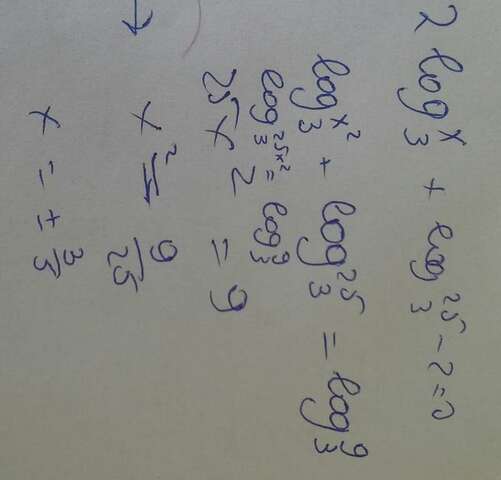 2 log₃ˣ + log₃²⁵ - 2 = 0
log₃ˣ² + log₃²⁵ = log₃⁹
log₃²⁵ˣ² = log₃⁹
25x² = 9
→ x² = 9/25
x = ± 3/5